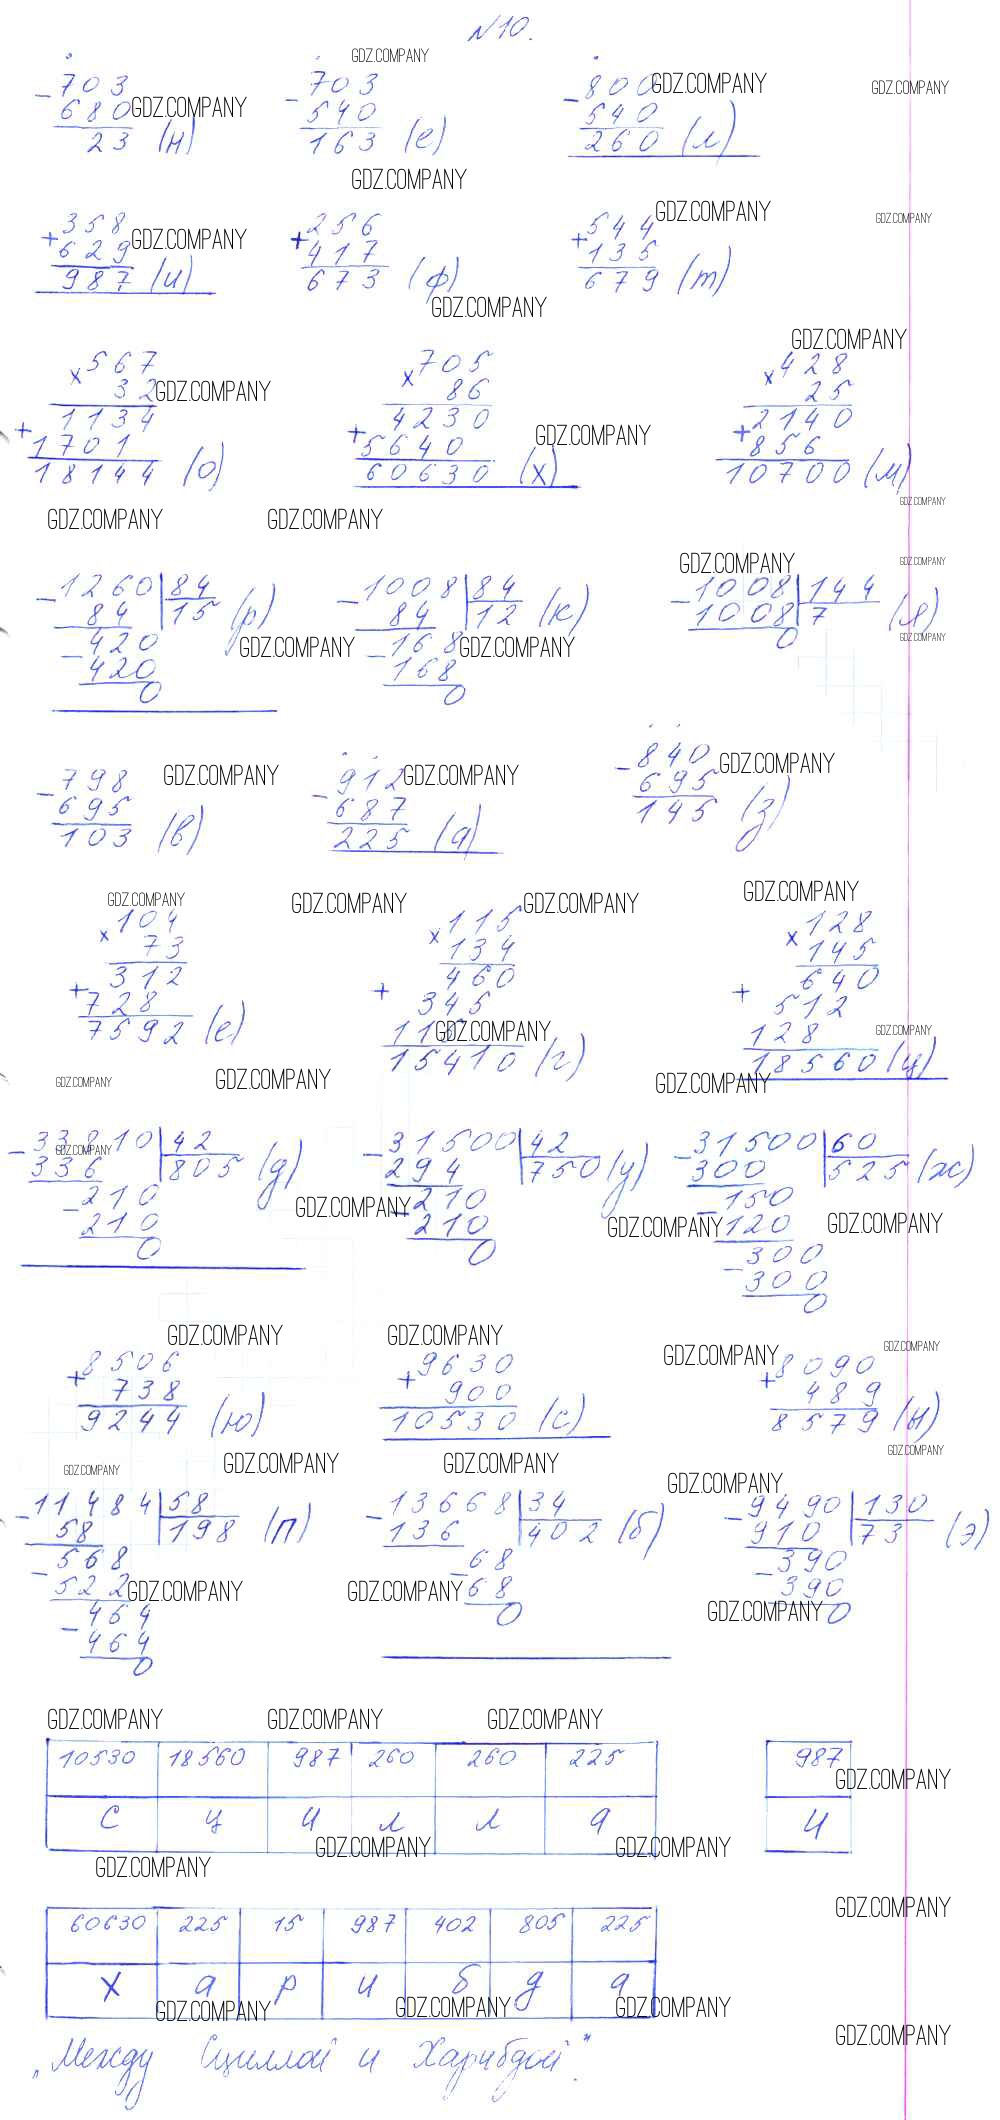 №10.
703 703 800
- 680 - 540 - 540
23 (н) 163 (е) 260 (л)
358 256 544
+ 629 + 417 + 135
987 (и) 673 (ф) 679 (т)
567 705 428
x 32 x 86 x 25
1134 4230 2140
+ 1701 + 5640 + 856
18144 (о) 60630 (х) 10700 (м)
- 1260 | 84 - 1008 | 84 - 1008 | 144
84 15 (р) 84 12 (к) 1008 7 (я)
- 420 - 168 0
420 168
0 0
798 912 840
- 695 - 687 - 695
103 (в) 225 (а) 145 (з)
104 115 128
x 73 x 134 x 145
312 460 640
+ 728 + 345 + 512
7592 (е) 115 128
15410 (г) 18560 (ц)
- 33810 | 42 - 31500 | 42 - 31500 | 60
336 805 (д) 294 750 (у) 300 525 (ж)
- 210 - 210 - 150
210 210 120
0 0 - 300
300
0
8506 9630 8090
+ 738 + 900 + 489
9244 (ю) 10530 (с) 8579 (ы)
- 11484 | 58 - 13668 | 34 - 9490 | 130
58 198 (п) 136 402 (б) 910 73 (э)
- 568 - 68 - 390
522 68 390
- 464 0 0
464
0
10530 18560 987 260 260 225 987
с ц и л л а и
60630 225 15 987 402 805 225
х а р и б д а
„Между Сциллой и Харибдой".